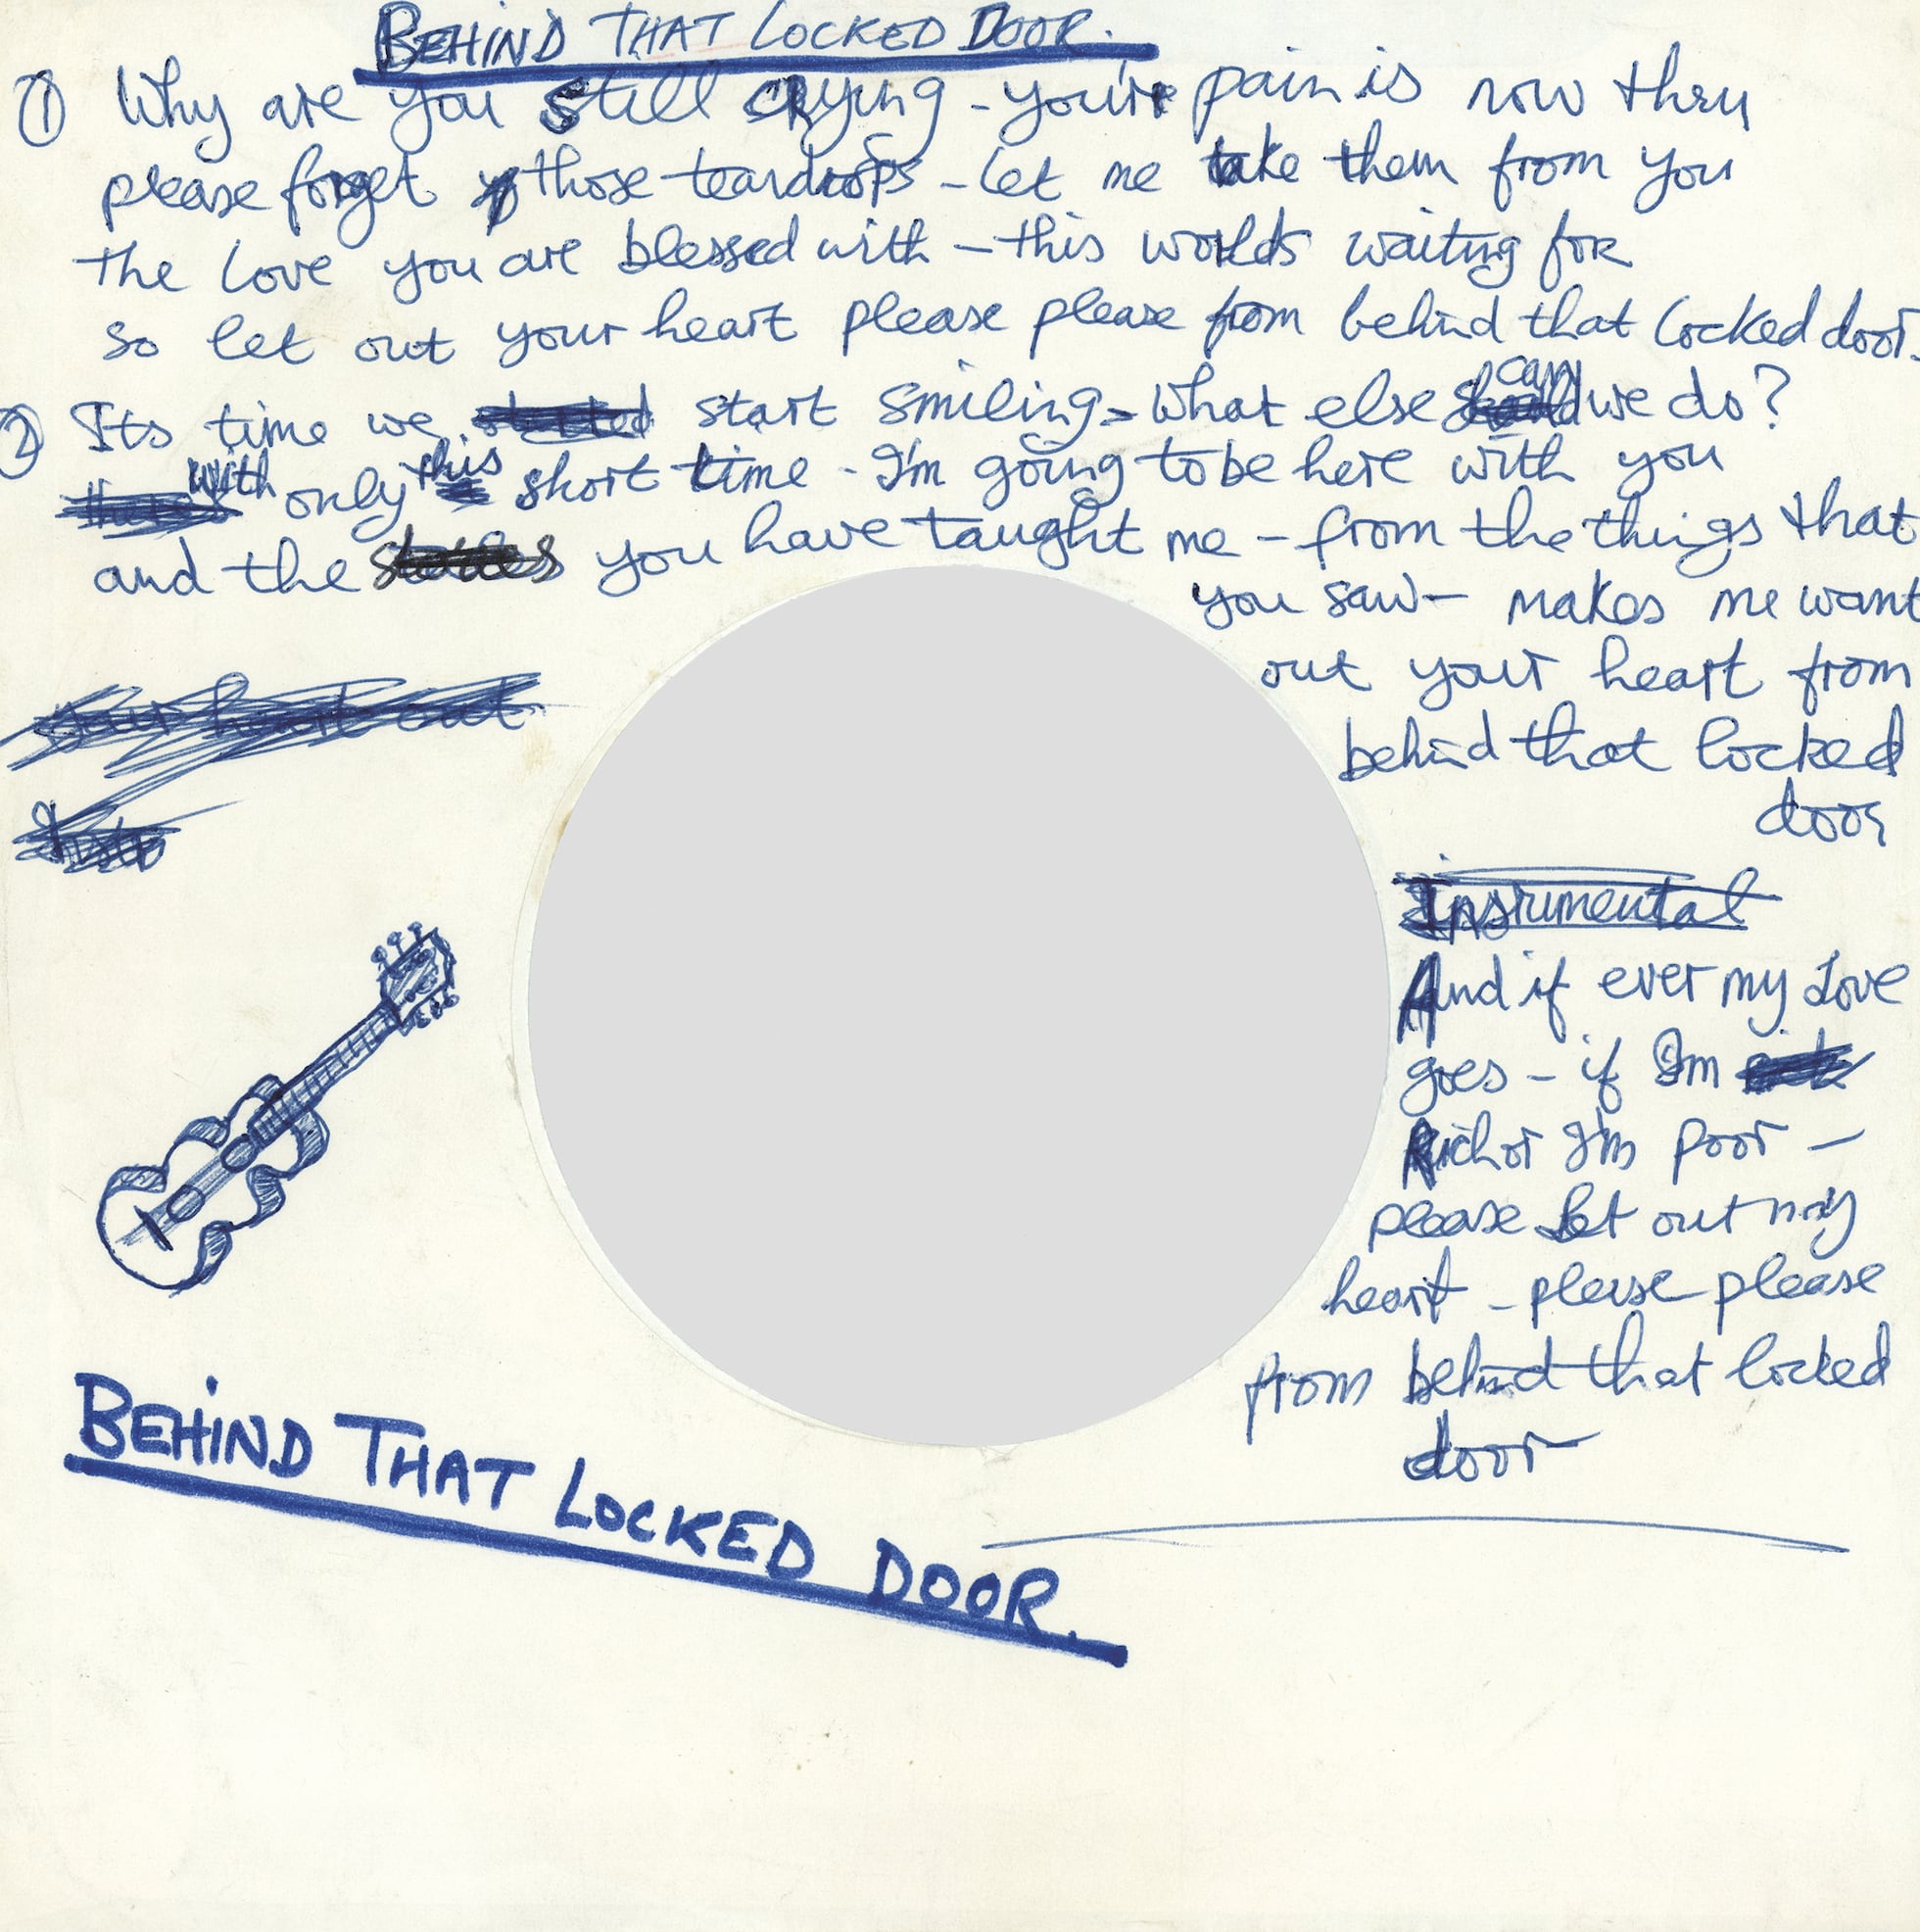 BEHIND THAT LOCKED DOOR.
1 Why are you still crying - you're pain is now thru
please forget those teardrops - let me take them from you
the love you are blessed with - this worlds waiting for
so let out your heart please please from behind that locked door.
2 Its time we start smiling - what else can we do?
with only this short time - I'm going to be here with you
and the you have taught me - from the things that
you saw - makes me want
out your heart from
behind that locked
door
your heart out
Insrumental
And if ever my Love
goes - if Im
Rich or I'm poor -
please let out my
heart - please please
from behind that locked
door
BEHIND THAT LOCKED DOOR.